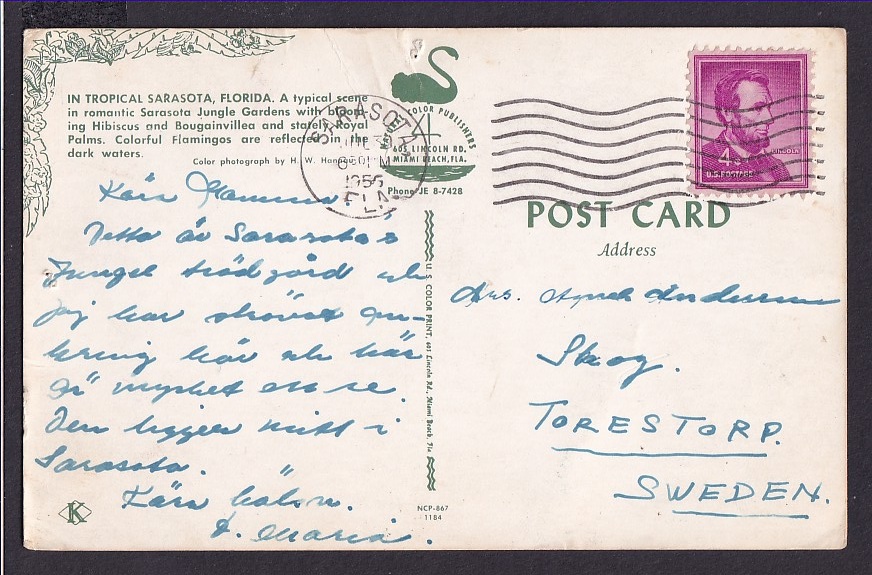 IN TROPICAL SARASOTA, FLORIDA. A typical scene
in romantic Sarasota Jungle Gardens with bloom-
ing Hibiscus and Bougainvillea and stately Royal
Palms. Colorful Flamingos are reflected in the
dark waters.
Color photograph by H. W. Hannau
COLOR PUBLISHERS
605 LINCOLN RD.
MIAMI BEACH, FLA.
Phone JE 8-7428
SARASOTA
PM
1956
FLA.
4¢
LINCOLN
U.S. POSTAGE
POST CARD
Address
Kära Mamma!
Detta är Sarasotas
Jungel trädgård och
jag har strövat om-
kring här och här
är mycket att se.
Den ligger mitt i
Sarasota.
Kära hälsn.
Maria.
U. S. COLOR PRINT, 605 Lincoln Rd., Miami Beach, Fla.
K
NCP-867
1184
Mrs. Agnes Andersson
Skog.
TORESTORP.
SWEDEN.